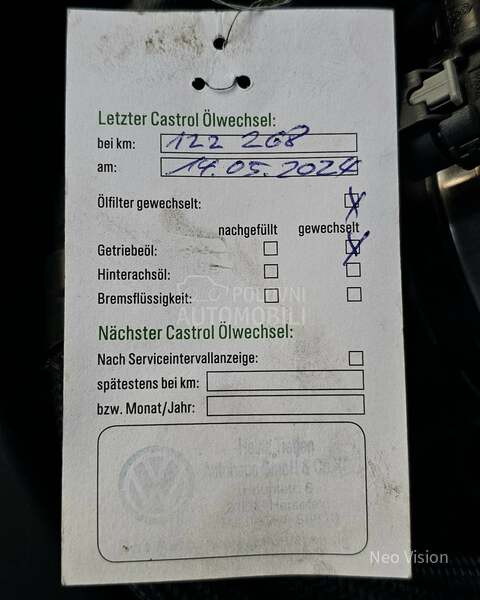 Letzter Castrol Ölwechsel:
bei km: 122 268
am: 14.05.2024
Ölfilter gewechselt:
nachgefüllt gewechselt
Getriebeöl:
Hinterachsöl:
Bremsflüssigkeit:
POLOVNI
AUTOMOBILI
Nächster Castrol Ölwechsel:
Nach Serviceintervallanzeige:
spätestens bei km:
bzw. Monat/Jahr:
Autohaus GmbH & Co. KG
Neo Vision